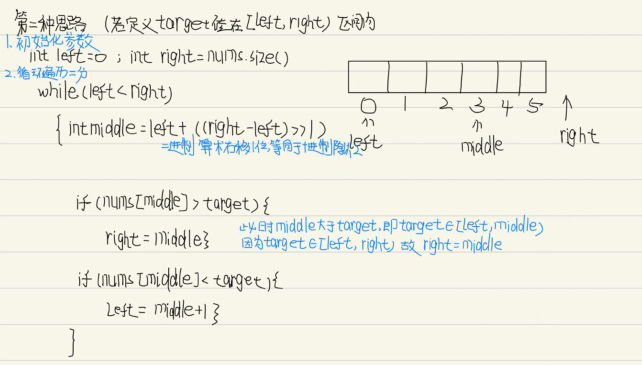 第二种思路 (若定义target位在[left,right)区间内
1.初始化参数
int left=0 ; int right=nums.size()
2.循环遍历二分
while(left<right)
{ int middle=left+((right-left)>>1)
=进制 算术右移1位,等同于十进制除以2
0 1 2 3 4 5
left middle right
if(nums[middle]>target){
right=middle}
此时middle大于target,即target∈[left,middle)
因为target∈[left,right) 故 right=middle
if(nums[middle]<target){
left= middle+1}
}